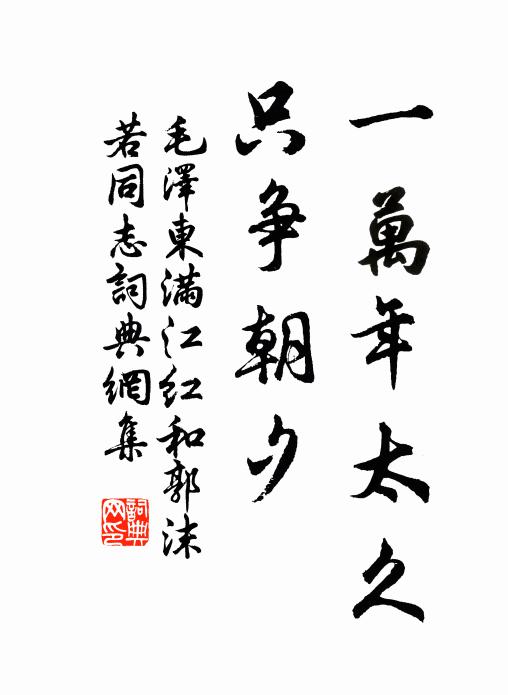 一萬年太久
只争朝夕
毛澤東满江红和郭沫
若同志詞典網集
詞典网印